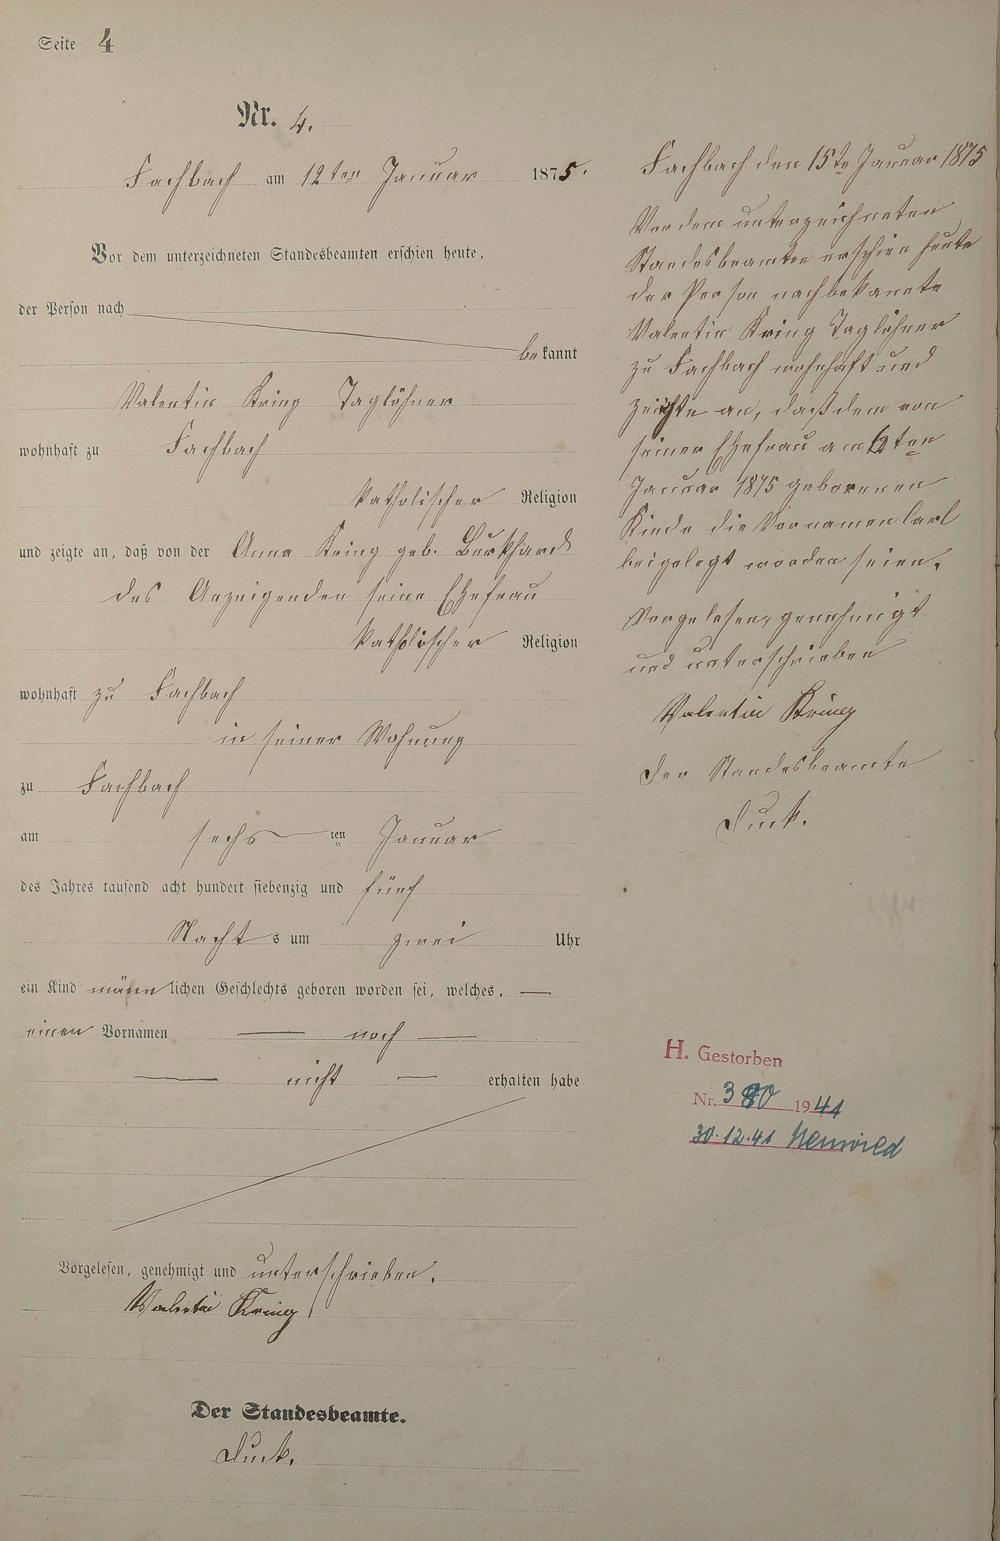 Seite 4
Nr. 4.
Fachbach am 12ten Januar 1875.
Vor dem unterzeichneten Standesbeamten erschien heute,
der Person nach
bekannt
Valentin Kring Taglöhner
wohnhaft zu Fachbach
katholischer Religion
und zeigte an, daß von der Anna Kring geb. Burkhard
des Anzeigenden seine Ehefrau
katholischer Religion
wohnhaft zu Fachbach
in seiner Wohnung
zu Fachbach
am sechsten Januar
des Jahres tausend acht hundert siebenzig und fünf
Nachts um zwei Uhr
ein Kind männlichen Geschlechts geboren worden sei, welches,
einen Vornamen noch
nicht erhalten habe
Vorgelesen, genehmigt und unterschrieben.
Valentin Kring
Der Standesbeamte.
Fachbach den 15ten Januar 1875
Vor dem unterzeichneten
Standesbeamten erschien heute
der Person nach bekannte
Valentin Kring Taglöhner
zu Fachbach wohnhaft und
zeigte an, daß dem von
seiner Ehefrau am 6ten
Januar 1875 geborenen
Kinde die Vornamen Carl
beigelegt worden seien.
Vorgelesen, genehmigt
und unterschrieben
Valentin Kring
Der Standesbeamte
H. Gestorben
Nr. 380 1941
30.12.41 Neuwied